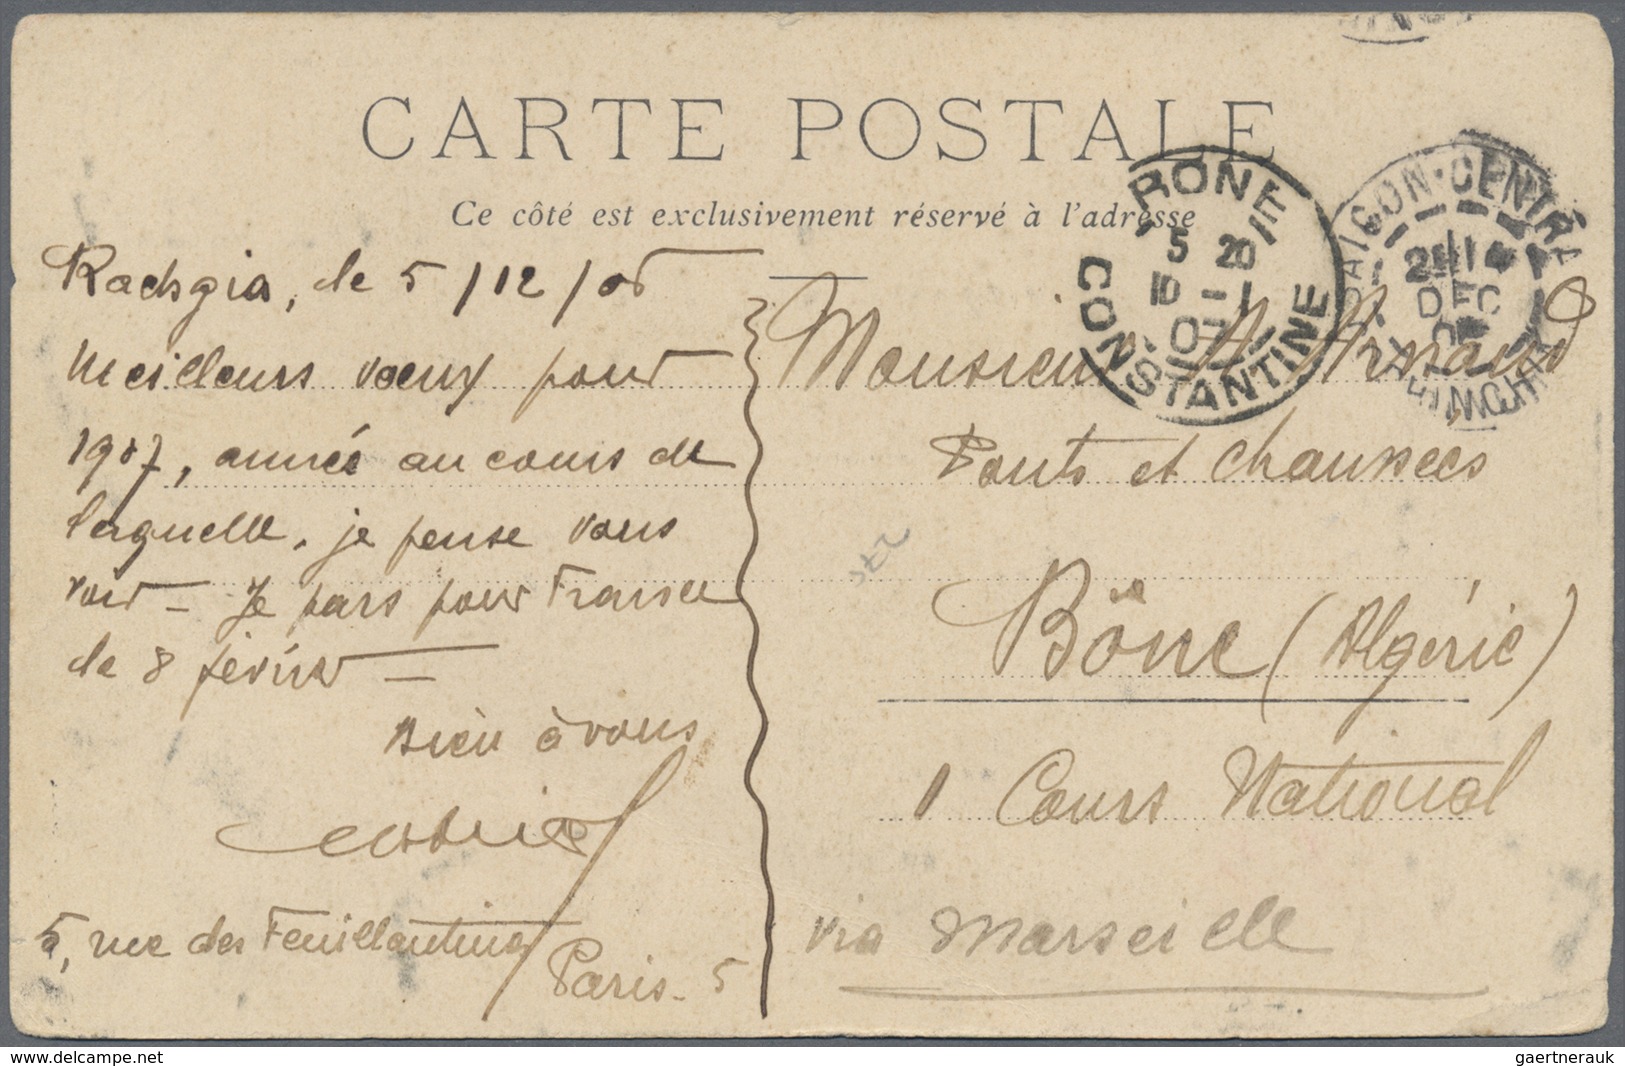 CARTE POSTALE
Ce côté est exclusivement réservé à l'adresse
Rachgia, le 5/12/06
Meilleurs vœux pour
1907, année au cours de
laquelle, je pense vous
voir – Je pars pour France
le 8 février –
Bien à vous
5, rue des Feuillantines
Paris. 5
BONE
5 20
10 - 1
07
CONSTANTINE
SAIGON-CENTRAL
DEC
06
COCHINCHINE
Monsieur A. Arnaud
Ponts et chaussées
Bône (Algérie)
1 Cours National
via Marseille
www.delcampe.net
gaertnerauk